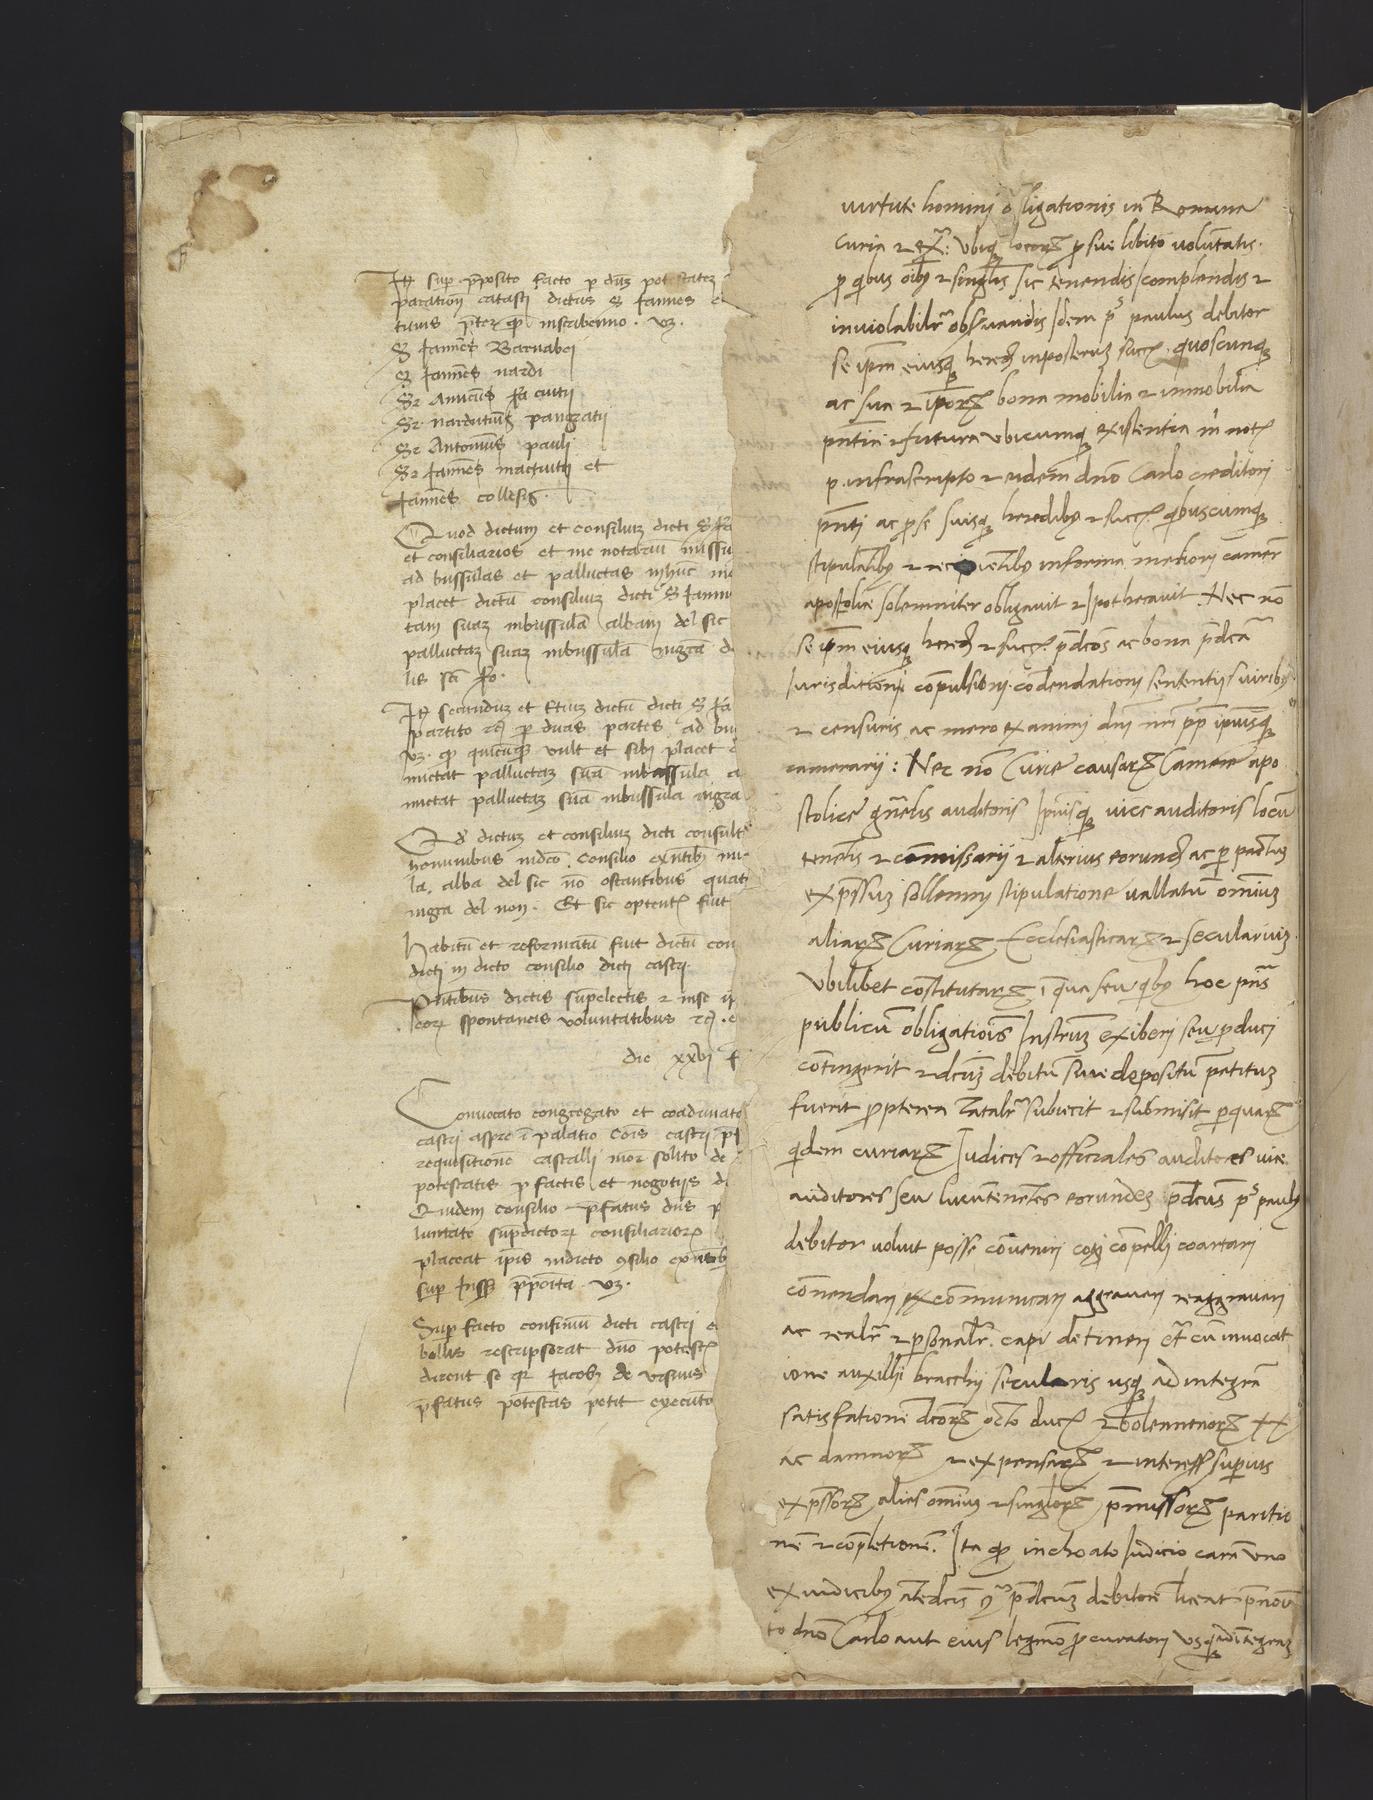 It sup p̄posito facto p dn̄z potestatez
paration catasti dictus S Iannes
tuus p̄ter qp̄ inscribenno . vz .
S Iannēs Barnabei
S Iannēs nardi
Sr Amicus
Sr nardutius pangratii
Sr Antonius pauli
Sr Iannēs et
Iannēs collesis .
Quod dictum et consiluz dicti S Ia
et consiliarios et me notariū missu
ad bussulas et palluctas
placet dictū consiluz dicti S Iann
tam suaz inbussulā albam del sic
palluctaz suaz inbussulā nigrā d
It secunduz et Etiuz dictū dicti S Ia
partito rc̄ p duas partes ad bu
vz . qp̄ quicūqz vult et sibi placet
mictat palluctaz suā inbussula a
mictat palluctaz suā inbussula nigra
Qd dictuz et consiluz dicti consult
hominibus indco Consilio exn̄tibz
la . alba del sic nō ostantibus quat
nigra del non . Et sic optent fuit
Habitū et reformatū fuit dictū con
dicti in dicto consilio dicti castri .
P̄ntibus dictis supelectis z
spontaneis voluntatibus rc̄ .
die xxvi
Convocato congregato et coadunato
castri aspre ī palatio cōis castri
requisitione castalli mor solito de
potestatis p factis et negotiis d
Quidem consilio p̄fatus dn̄s p
luntate sup̄dictorȝ consiliarior
placeat ip̄is indicto ꝯsilio exn̄tib
sup p̄pōita . vz .
Sup facto confiniū dicti castri e
bollis rescripserat dn̄o potest
dicent se qr Iacobz de ursinis
p̄fatus potestas petit executo
virtute homini obligationis in Romana
Curia z exᵃ : ubiqz locorȝ p sue libito volūtatis .
p qibus oībȝ z singlis sic tenendis complendis z
inviolabilr̄ obs̄uandis Idem pˢ paulus debitor
se ipm̄ eiusqz hered inposteruz succ . quoscunqz
ac sua z ip̄orȝ bona mobilia z inmobilia
pn̄tia z futura ubicumqz existentia
p . infrascripto z eidem dn̄o Carlo creditori
pn̄ti ac p se suisqz heredibȝ z succ qibuscumqz
stipulātibȝ z recipientibȝ informa meliori camere
apostolice solemniter obligavit z Ipothecavit . Nec nō
se ipm̄ eiusqz hered z succ p̄dcōs ac bona p̄dcā
Iurisditioni cōpulsioni . cōdendationi sententiis viribȝ
z censuris ac mero examini dn̄i nr̄i pp̄ ipiusqz
camerarii : Nec nō Curie causarȝ Camere apo
stolice gn̄ralis auditoris Ipiusqz vice auditoris locū
tenētis z cōmissarii z alterius eorund ac p pactuz
exp̄ssuz sollemni stipulatione vallatū omīuz
aliarȝ Curiarȝ Ecclesiasticarȝ z seculariuz .
Ubilibet cōstitutarȝ ī qua seu qibȝ hoc pn̄s
publicū obligatiōis Instruz exiberi seu pduci
cōtingerit z dcūz debitū sive depositū petituz
fuerit propterea subiecit z submisit p quarȝ
qidem curiarȝ Iudices z officiales auditores vice
auditores seu locūtenētes eorundez p̄dcūs pˢ paulȝ
debitor voluit posse cōveniri cogi cōpelli coartari
cōnendari excōmunicari aggravari reaggravari
ac realr̄ z psonalr̄ . capi detineri etᵃ cū invocat
ione auxilii bracchii secularis usqz ad integrā
satisfationē dcōrȝ octo duc z bolenenorȝ XX
ac damnorȝ z expensarȝ z interess superius
exp̄ssorȝ alies omīuz z singlorȝ p̄missorȝ paritio
nē z cōpletionē . Ita qp̄ inchoato Iudicio corā uno
ex iudicibȝ p̄dcūz debitorē liceat
to dn̄o Carlo aut eius legmō pcuratori usqz ad ītegraz